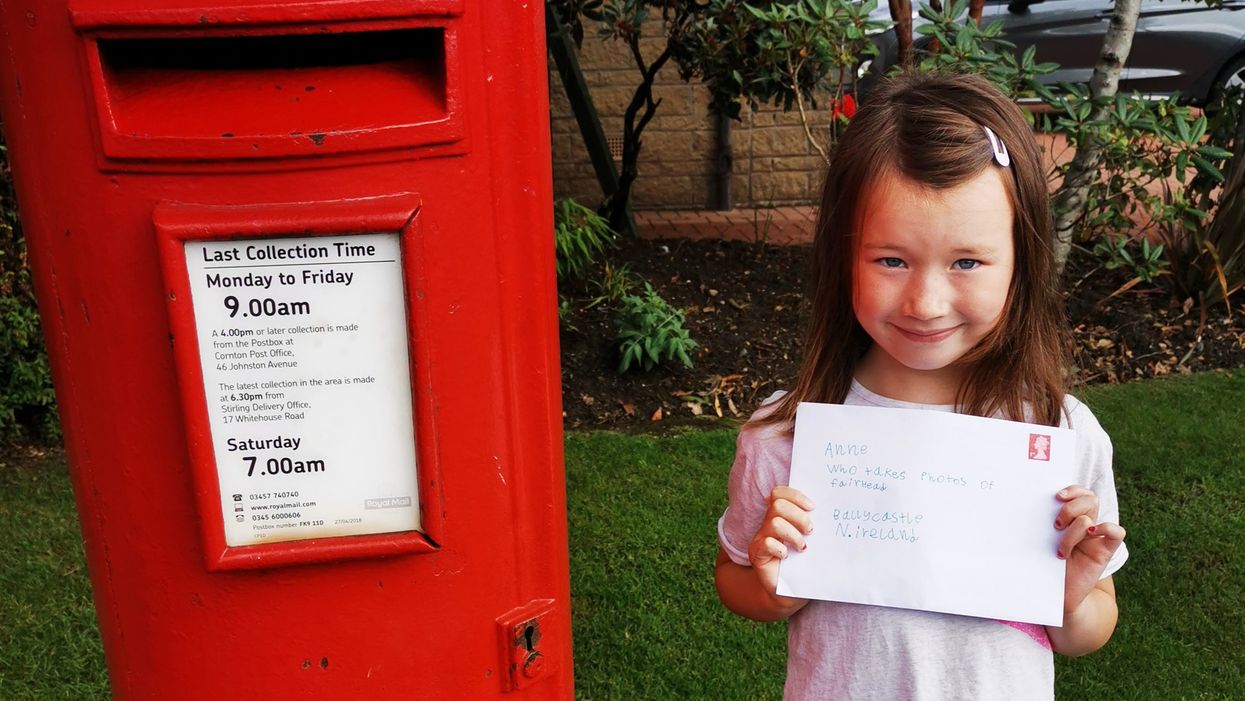 Last Collection Time
Monday to Friday
9.00am
A 4.00pm or later collection is made
from the Postbox at
Cornton Post Office,
46 Johnston Avenue
The latest collection in the area is made
at 6.30pm from
Stirling Delivery Office,
17 Whitehouse Road
Saturday
7.00am
03457 740740
www.royalmail.com
0345 6000606
Royal Mail
Postbox number FK9 11D 27/04/2018
Anne
Who takes Photos of
fairHead
Ballycastle
N.ireland